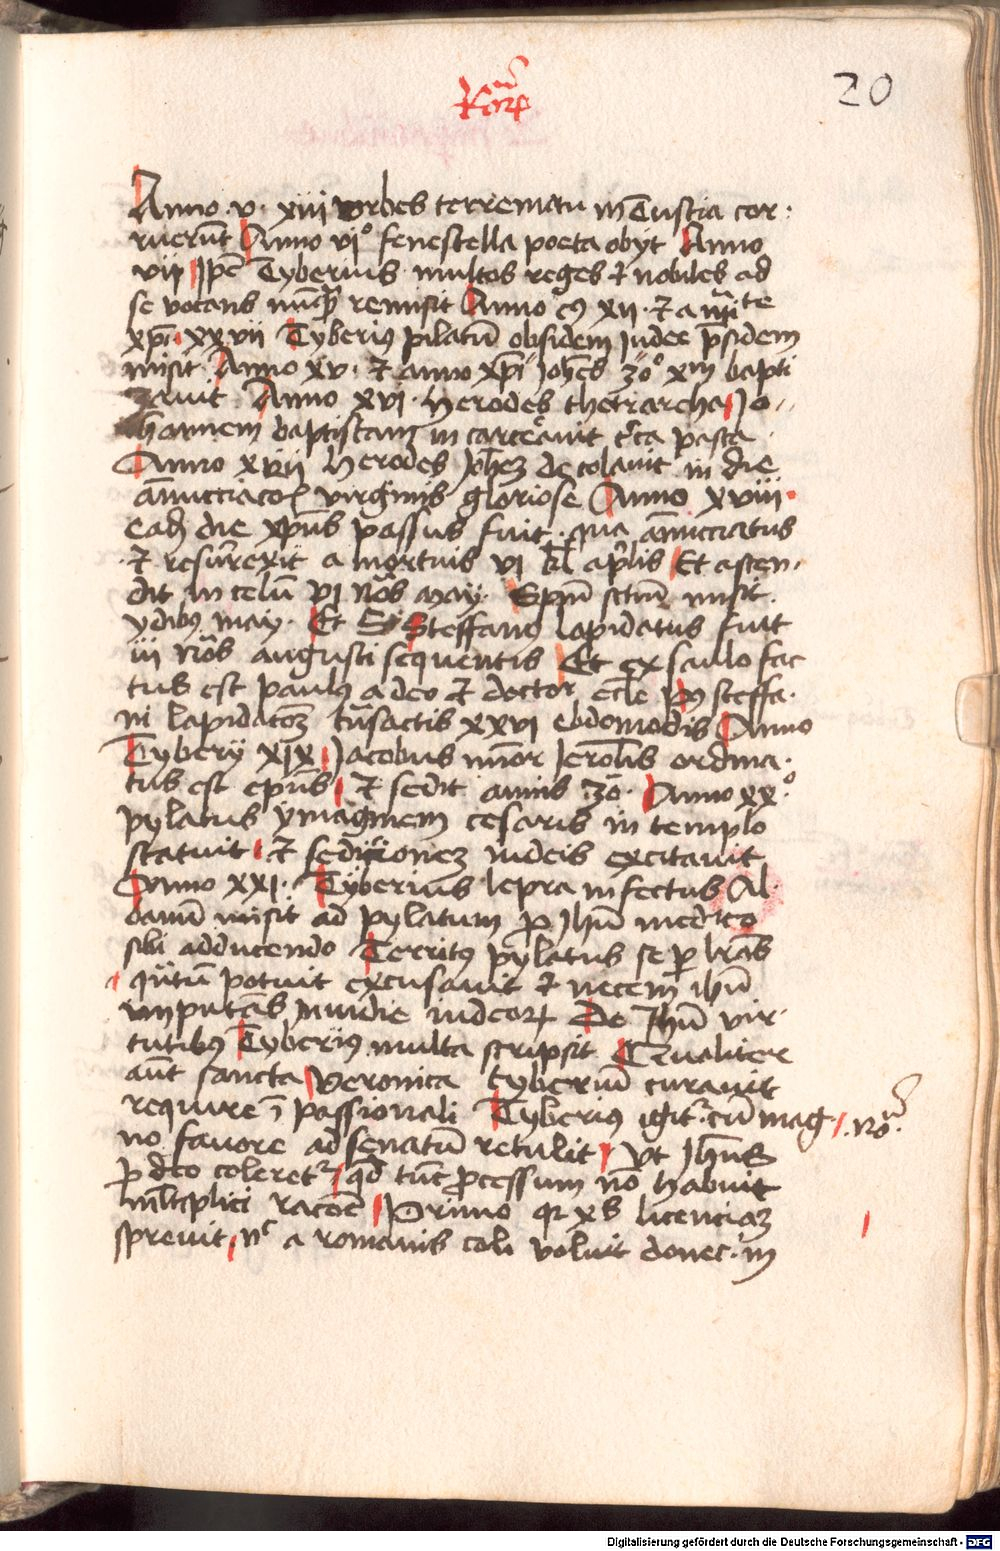 20
Anno v. xiii vrbes terremotu in Tuscia cor
ruerūt Anno vi° fenestella poeta obyt Anno
vii Ipē Tyberius multos reges et nobiles ad
se vocans nūq̄ꝫ remisit Anno xii. et a
xpi xxvii Tyberiꝰ pilatū obsidem iudee p̄sidem
misit Anno xv. et anno xpi Johēs 30° xiii bapti
zauit Anno xvi. herodes thetrarcha Jo
hannem baptistam in carcerauit c̄ca pasca
Anno xvii herodes Joħeꝫ decolauit in die
annūcciacōis virginis gloriose Anno xviii
eadē die xpūs passus fuit qua annucciatus
et resurrexit a mortuis vi kl aprilis Et ascen
dit in celū vi nōs may. Spm sctum misit
ydibꝰ may. Et Steffanꝰ lapidatus fuit
iii nōs augusti sequentis Et ex saulo fac
tus est paulus a deo et doctor eccle steffa
ni lapidacōꝫ trāsactis xxvi ebdomodis Anno
Tybery xix Jacobus minor Jerosolis ordina
tus est epūs et sedit annis 30. Anno xx°
pylatus ymaginem cesaris in templo
statuit et sedicionez iudeis excitauit
Anno xxi. Tyberius lepra infectus Al
banū misit ad pylatum ꝓ Jhu medico
sibi adducendo Territꝰ pylatus se ꝑ lrās
qūtum potuit excusauit et necem ihū
imputās inuidie iudeorꝫ De Jhū vir
tutibꝰ Tyberiꝰ multa scripsit Qualiter
aūt sancta Veronica tyberiū curauit
require ī passionali Tyberiꝰ igitꝛ cū mag
no fauore ad senatū retulit Vt Jhūs
ꝓ deo coleretꝛ qd tūc ꝓcessum nō habuit
mltiplici racōe Primo qꝛ xs licenciaꝫ
spreuit nᶜ a romanis coli voluit donec in